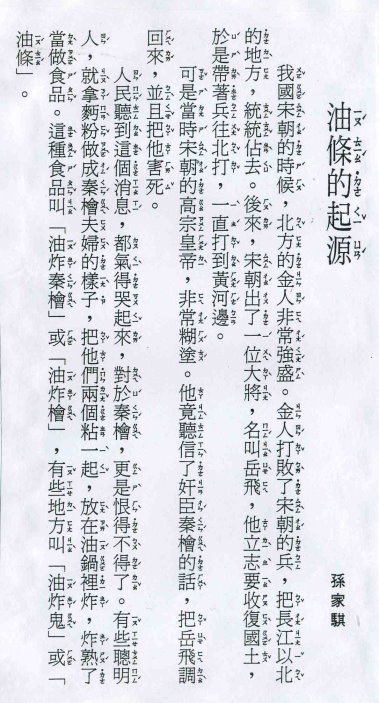 油條的起源
孫家騏
我國宋朝的時候，北方的金人非常強盛。金人打敗了宋朝的兵，把長江以北
的地方，統統佔去。後來，宋朝出了一位大將，名叫岳飛，他立志要收復國土，
於是帶著兵往北打，一直打到黃河邊。
可是當時宋朝的高宗皇帝，非常糊塗。他竟聽信了奸臣秦檜的話，把岳飛調
回來，並且把他害死。
人民聽到這個消息，都氣得哭起來，對於秦檜，更是恨得不得了。有些聰明
人，就拿麪粉做成秦檜夫婦的樣子，把他們兩個粘一起，放在油鍋裡炸，炸熟了
當做食品。這種食品叫「油炸秦檜」或「油炸檜」，有些地方叫「油炸鬼」或「
油條」。